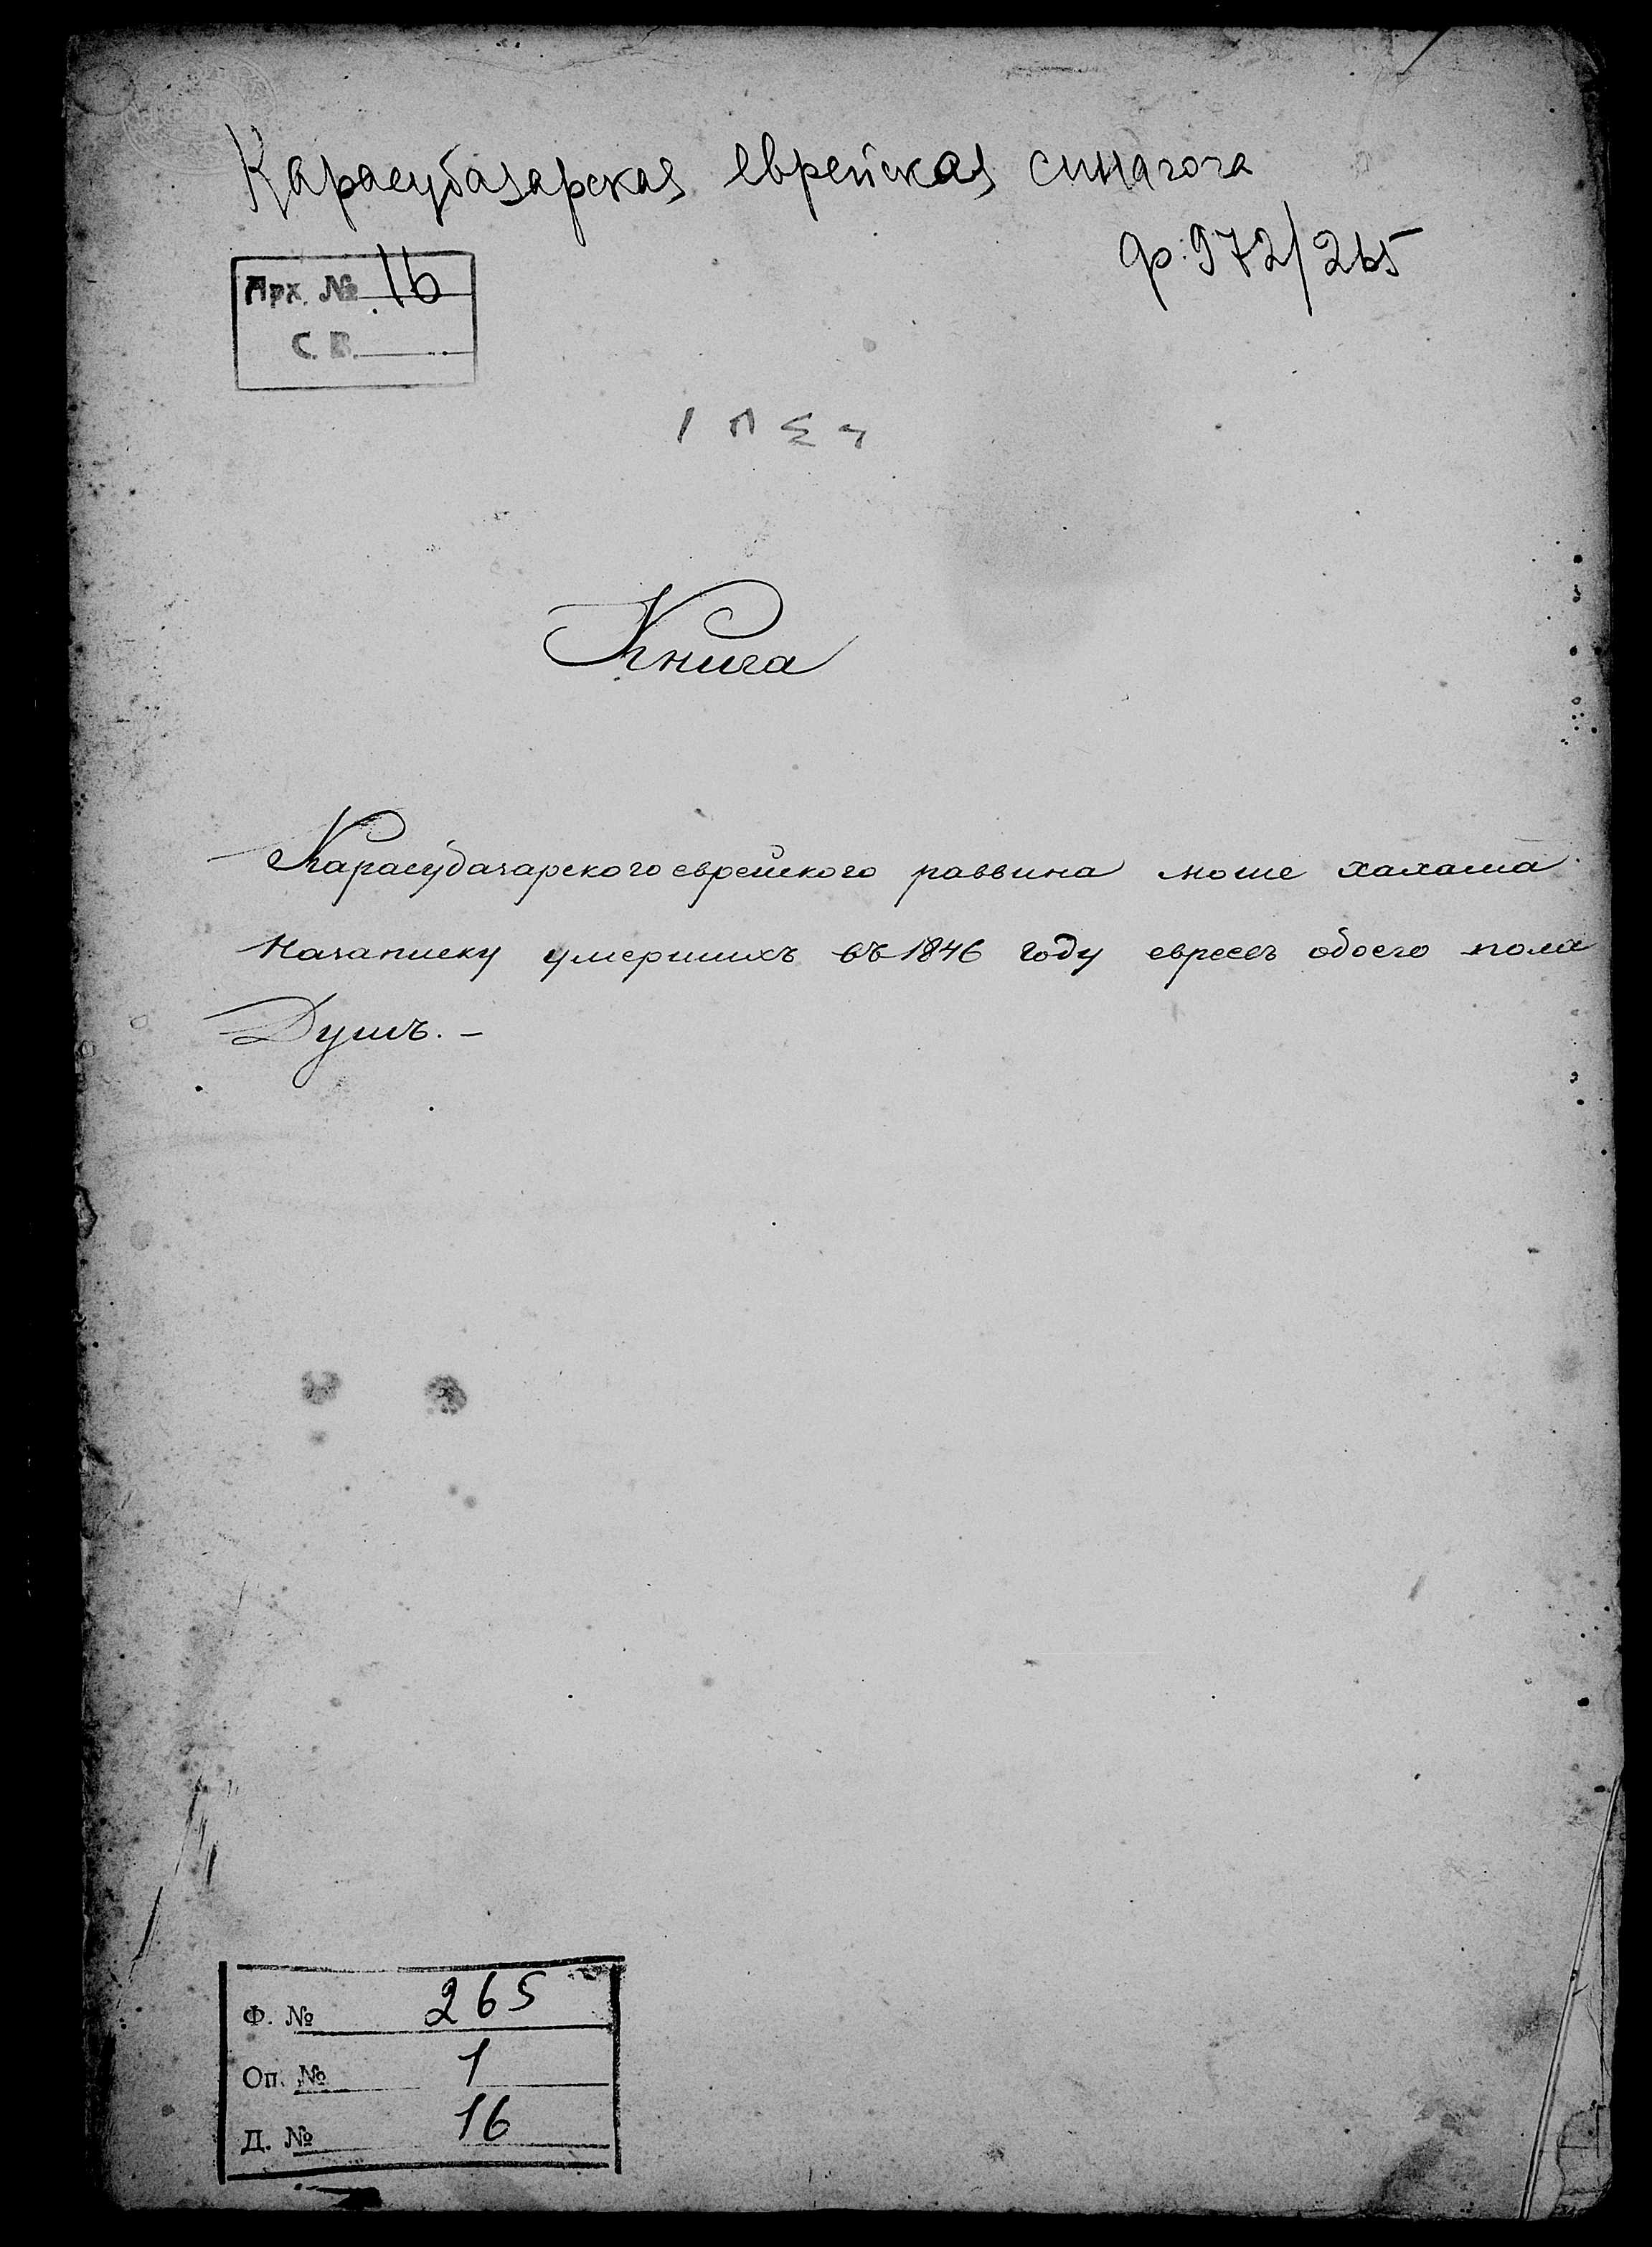 Карасубазарская еврейская синагога
ф. 972/265
Арх. № 16
С. В.
Книга
Карасубазарского еврейского раввина моше хахама
Назаписку умершихъ въ 1846 году евреевъ обоего пола
Душъ. —
Ф. № 265
Оп. № 1
Д. № 16